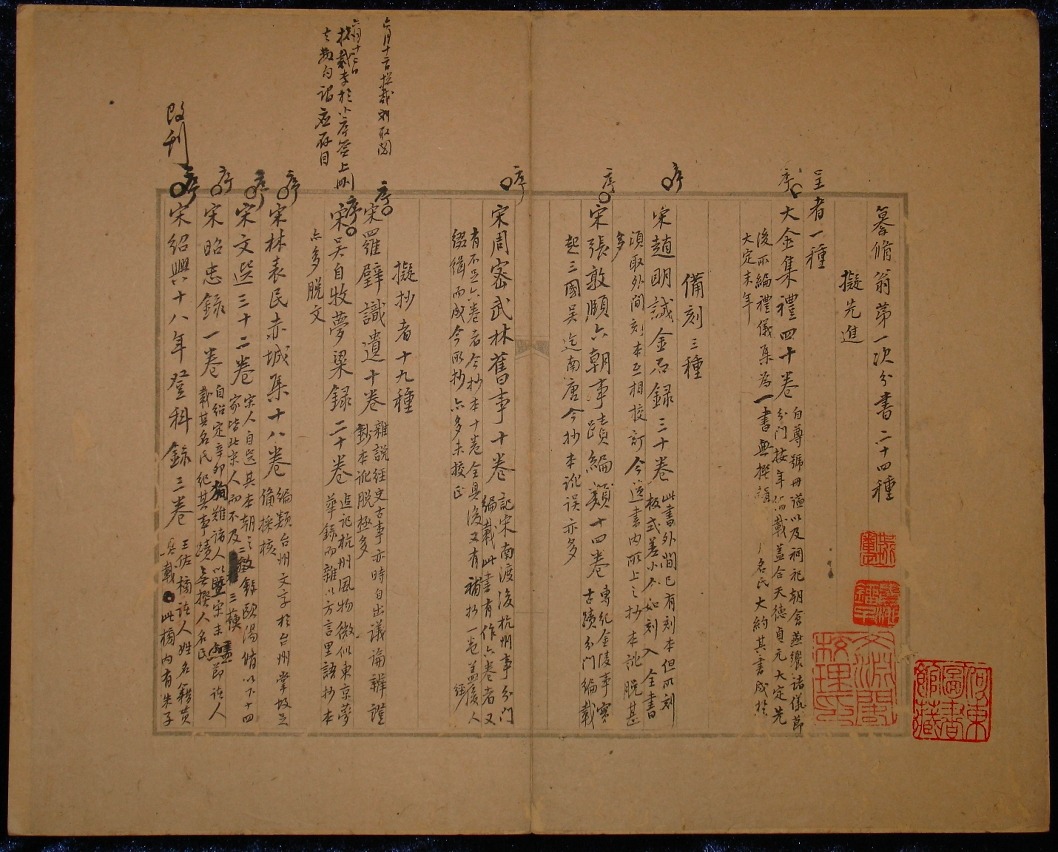 纂脩翁第一次分書二十四種
擬先進
呈者一種
序
大金集禮四十卷
自尊號冊謚以及祠祀朝會燕饗諸儀節
分門按年臚載蓋合天德貞元大定先
後所編禮儀集為一書無撰
名氏大約其書成於
大定末年
備刻三種
序
宋趙明誠金石錄三十卷
此書外間已有刻本但所刻
板式甚小不如刻入全書
須取外間刻本互相校訂今送書內所上之抄本訛脫甚
多
序
宋張敦頤六朝事蹟編類十四卷
專紀金陵事實
古蹟分門編載
起三國吳迄南唐今抄本訛誤亦多
序
宋周密武林舊事十卷
記宋南渡後杭州事分門
編載此書有作六卷者又
有不足六卷者今抄本十卷全具後又有補抄一卷蓋後人
綴緝而成今所抄亦多未校正
擬抄者十九種
序
宋羅璧識遺十卷
雜說經史古事亦時自出議論辨證
鈔本訛脫極多
序
宋吳自牧夢粱錄二十卷
追記杭州風物微似東京夢
華錄而雜以方言里諺抄本
亦多脫文
序
宋林表民赤城集十八卷
編類台州文字於台州掌故足
備採核
序
宋文選三十二卷
宋人自選其本朝之文歐陽脩以下十四
家皆北宋人而不及三蘇
序
宋昭忠錄一卷
自紹定辛卯
難諸人以暨宋末
節諸人
載其名氏紀其事蹟無撰人名氏
序
宋紹興十八年登科錄三卷
王佐榜諸人姓名籍貫
具載此榜內有朱子
改刊
六月十二日